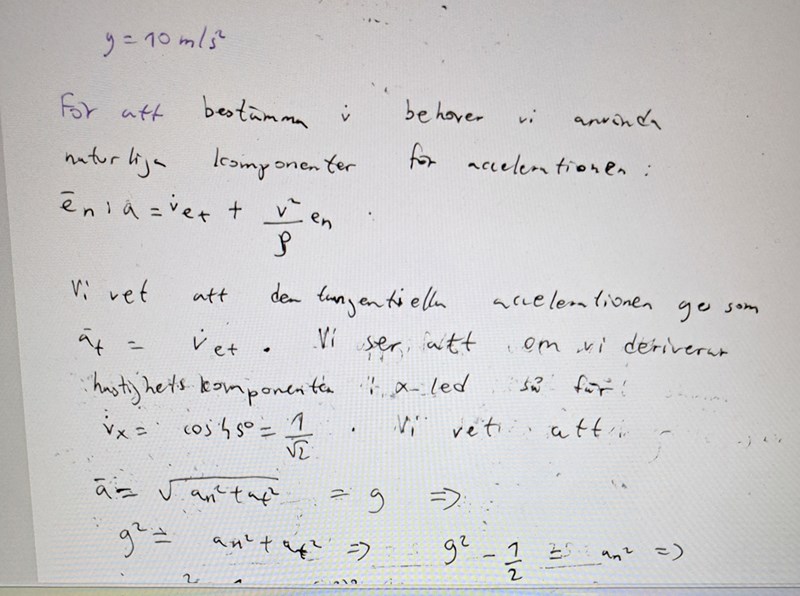 y = 10 m/s²
För att bestämma v̇ behöver vi använda
naturliga komponenter för accelerationen:
ēn: a = v̇et + v²/ρ en
Vi vet att den tangentiella accelerationen ges som
āt = v̇et. Vi ser att om vi deriverar
hastighetskomponenten i x-led så får:
v̇x = cos45° = 1/√2. Vi vet att
ā = √an²+at² = g =>
g² = an² + at² => g² - 1/2 = an² =>